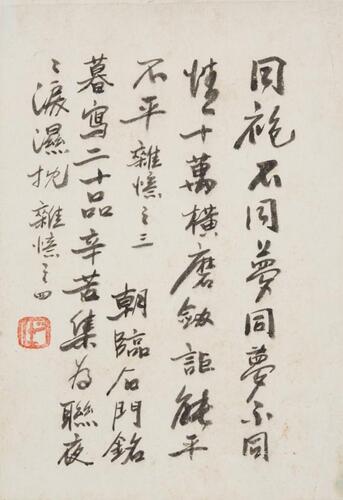 同袍不同夢同夢不同
情十萬橫磨劍詎能平
不平雜憶之三 朝臨石門銘
暮寫二十品辛苦集為聯夜
〻淚濕枕雜憶之四